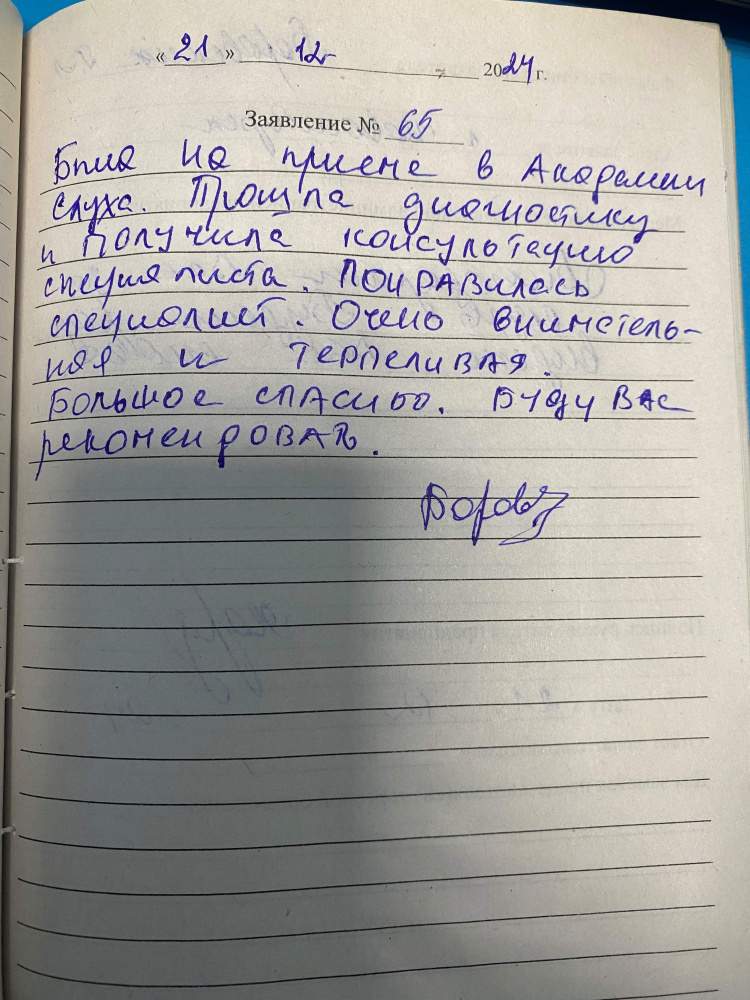 « 21 » 12 2024 г.
Заявление № 65
Была на приеме в Академии
слуха. Прошла диагностику
и получила консультацию
специалиста. Понравилась
специалист. Очень вниматель-
ная и терпеливая.
Большое спасибо. Буду вас
рекомендовать.